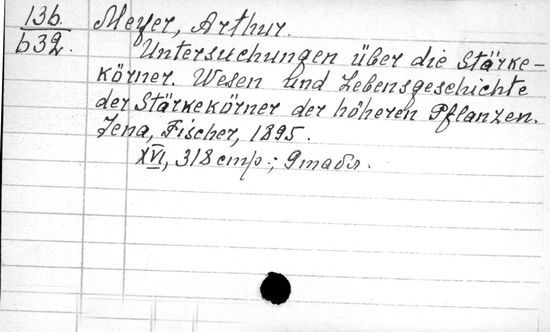 136. Meyer, Arthur.
b32. Untersuchungen über die Stärke-
körner. Wesen und Lebensgeschichte
der Stärkekörner der höheren Pflanzen.
Jena, Fischer, 1895.
XVI, 318 стр.; 9 табл.